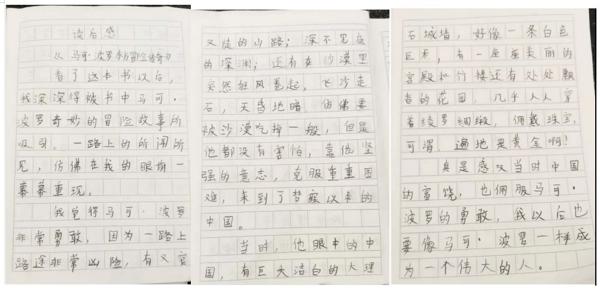 读后感
从马可·波罗
看了这本书以后，
我深深得被书中马可·
波罗奇妙的冒险故事所
吸引。一路上的所闻所
见，仿佛在我的眼前一
幕幕重现。
我觉得马可·波罗
非常勇敢，因为一路上
路途非常凶险，有又窄
又陡的山路；深不见底
的深涧；还有在沙漠里
突然狂风卷起，飞沙走
石，天昏地暗，仿佛要
被沙漠吃掉一般，但是
他都没有害怕，靠他坚
强的意志，克服重重困
难，来到了梦寐以求的
中国。
当时，他眼中的中
国，有巨大洁白的大理
石城墙，好像一条白色
巨龙，有一座座美丽的
宫殿和竹楼还有处处飘
香的花园，几乎人人穿
着绫罗绸缎，佩戴珠宝，
可谓遍地是黄金啊！
真是感叹当时中国
的富饶，也佩服马可·
波罗的勇敢，我以后也
要像马可·波罗一样成
为一个伟大的人。